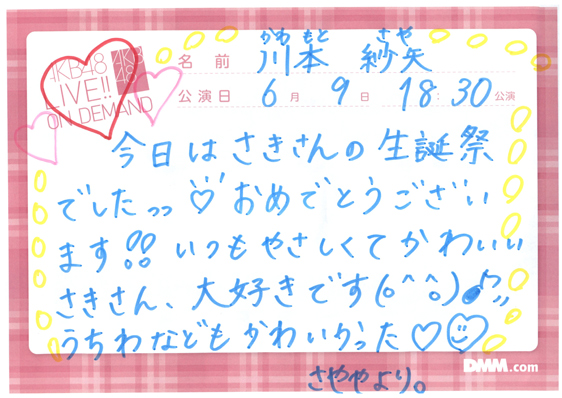 AKB48
LIVE!!
ON DEMAND
AKB
48
名前 川本 紗矢
かわ もと さや
公演日 6月 9日 18:30公演
今日はさきさんの生誕祭
でしたっっ♡おめでとうござい
ます!! いつもやさしくてかわいい
さきさん、大好きです(o^^o)♪
うちわなどもかわいかった♡
さややより。
DMM.com